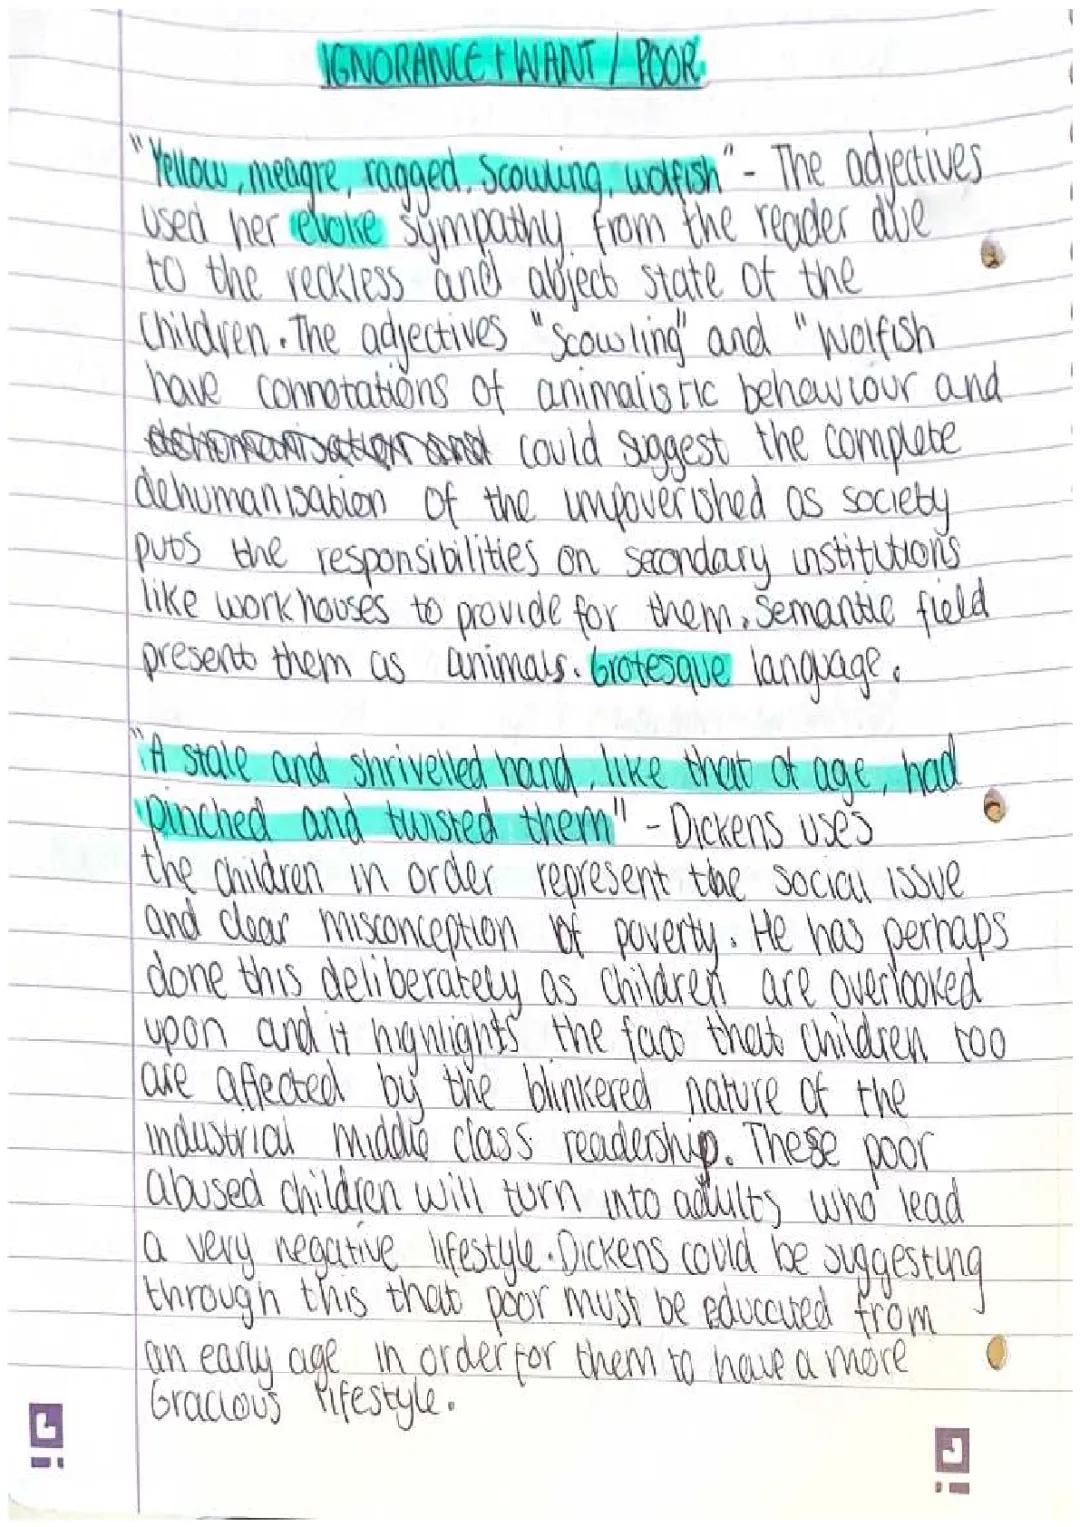 IGNORANCE + WANT / POOR.
"Yellow, meagre, ragged, Scowling, wolfish" - The adjectives
used her evoke sympathy from the reader due
to the reckless and abject state of the
Children. The adjectives "Scowling" and "wolfish
have connotations of animalistic behaviour and
could suggest the complete
dehumanisation of the impoverished as society
puts the responsibilities on secondary institutions
like workhouses to provide for them. Semantic field
present them as animals. Grotesque language.
"A stale and shrivelled hand, like that of age, had
pinched and twisted them" - Dickens uses
the children in order represent the social issue
and clear misconception of poverty. He has perhaps
done this deliberately as children are overlooked
upon and it highlights the fact that children too
are affected by the blinkered nature of the
industrial middle class readership. These poor
abused children will turn into adults who lead
a very negative lifestyle. Dickens could be suggesting
through this that poor must be educated from
an early age in order for them to have a more
Gracious lifestyle.